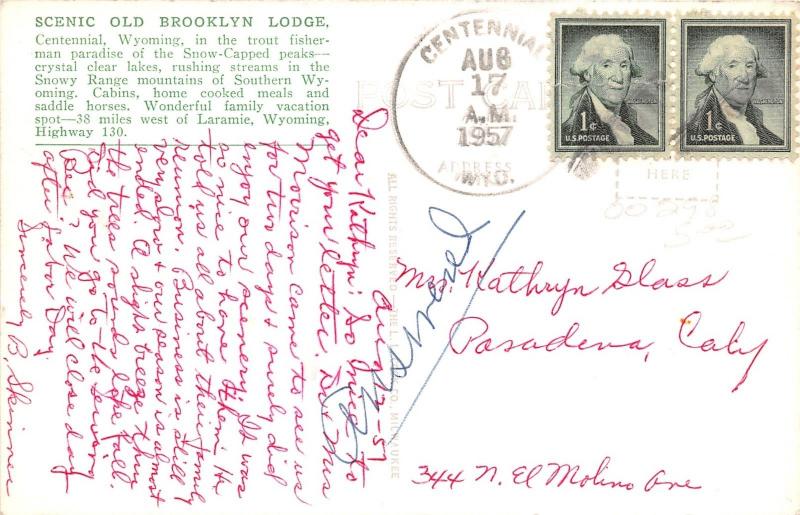 SCENIC OLD BROOKLYN LODGE,
Centennial, Wyoming, in the trout fisher-
man paradise of the Snow-Capped peaks—
crystal clear lakes, rushing streams in the
Snowy Range mountains of Southern Wy-
oming. Cabins, home cooked meals and
saddle horses. Wonderful family vacation
spot—38 miles west of Laramie, Wyoming,
Highway 130.
CENTENNIAL
AUG
17
A.M.
1957
WYO.
POST CARD
ADDRESS
HERE
1¢
WASHINGTON
U.S. POSTAGE
1¢
WASHINGTON
U.S. POSTAGE
Aug 57
Dear Kathryn: So nice to
get your letter. Mrs
Morrison came to see us
for two days & surely did
enjoy our scenery. It was
so nice to have them. He
told us all about their family
reunion. Business is still
very slow & our season is almost
ended. A slight breeze thru
the trees sounds like fall.
Did you go to the Sewing
Bee? We will close day
after Labor Day.
Sincerely B. Skinner
Answered
ALL RIGHTS RESERVED—THE CO., MILWAUKEE
Mrs. Kathryn Glass
Pasadena, Caly
344 N. El Molino Ave